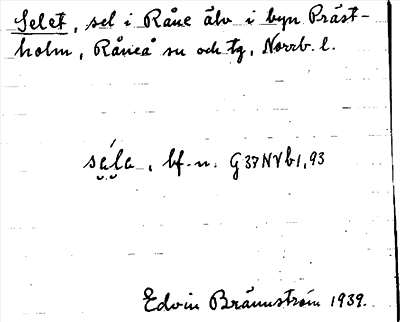 Selet, sel i Råne älv i byn Präst-
holm, Råneå sn och tg, Norrb. l.
sä́la, bf. n. G37NVb1,93
Edvin Brännström 1939.